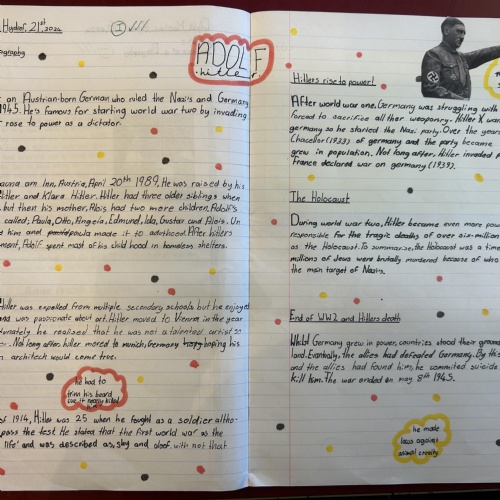 Hydref, 21st, 2024
I
ography
ADOLF
hitler
an Austrian-born German who ruled the Nazi's and Germany
1945. He's famous for starting world war two by invading
rose to power as a dictator.
am Inn, Austria, April 20th 1989. He was raised by his
Hitler and Klara Hitler. Hitler had three older siblings when
but then his mother, Alois had two more children, Adolf's
called; Paula, Otto, Angela, Edmund, Ida, Gustav and Alois. Un
him and paula made it to adulthood. After hitlers
ment, Adolf spent most of his child hood in homeless shelters.
Hitler was expelled from multiple secondary schools but he enjoyed
and was passionate about art. Hitler moved to Vienna in the year
tunately he realised that he was not a talented artist so
Not long after hitler moved to munich, Germany hoping his
architect would come true.
he had to
trim his beard
nearly killed
of 1914, Hitler was 25 when he fought as a soldier altho-
pass the test. He stated that the first world war as the
life' and was described as, shy and aloof with not that
Hitlers rise to power!
After world war one, Germany was struggling with
forced to sacrifice all their weaponry. Hitler X wan
germany so he started the Nazi party. Over the year
Chacellor (1933) of germany and the party became
grew in population. Not long after, Hitler invaded p
France declared war on germany (1939).
The Holocaust
During world war two, Hitler became even more pow
responsible for the tragic deaths of over six-million
as the Holocaust. To summarise, the Holocaust was a time
millions of Jews were brutally murdered because of who
the main target of Nazis.
End of WW2 and Hitlers death
Whilst Germany grew in power, countries stood their ground
land. Eventually, the allies had defeated Germany. By this
and the allies had found him, he commited suicide
kill him. The war ended on may 8th 1945.
he made
laws against
animal cruelty